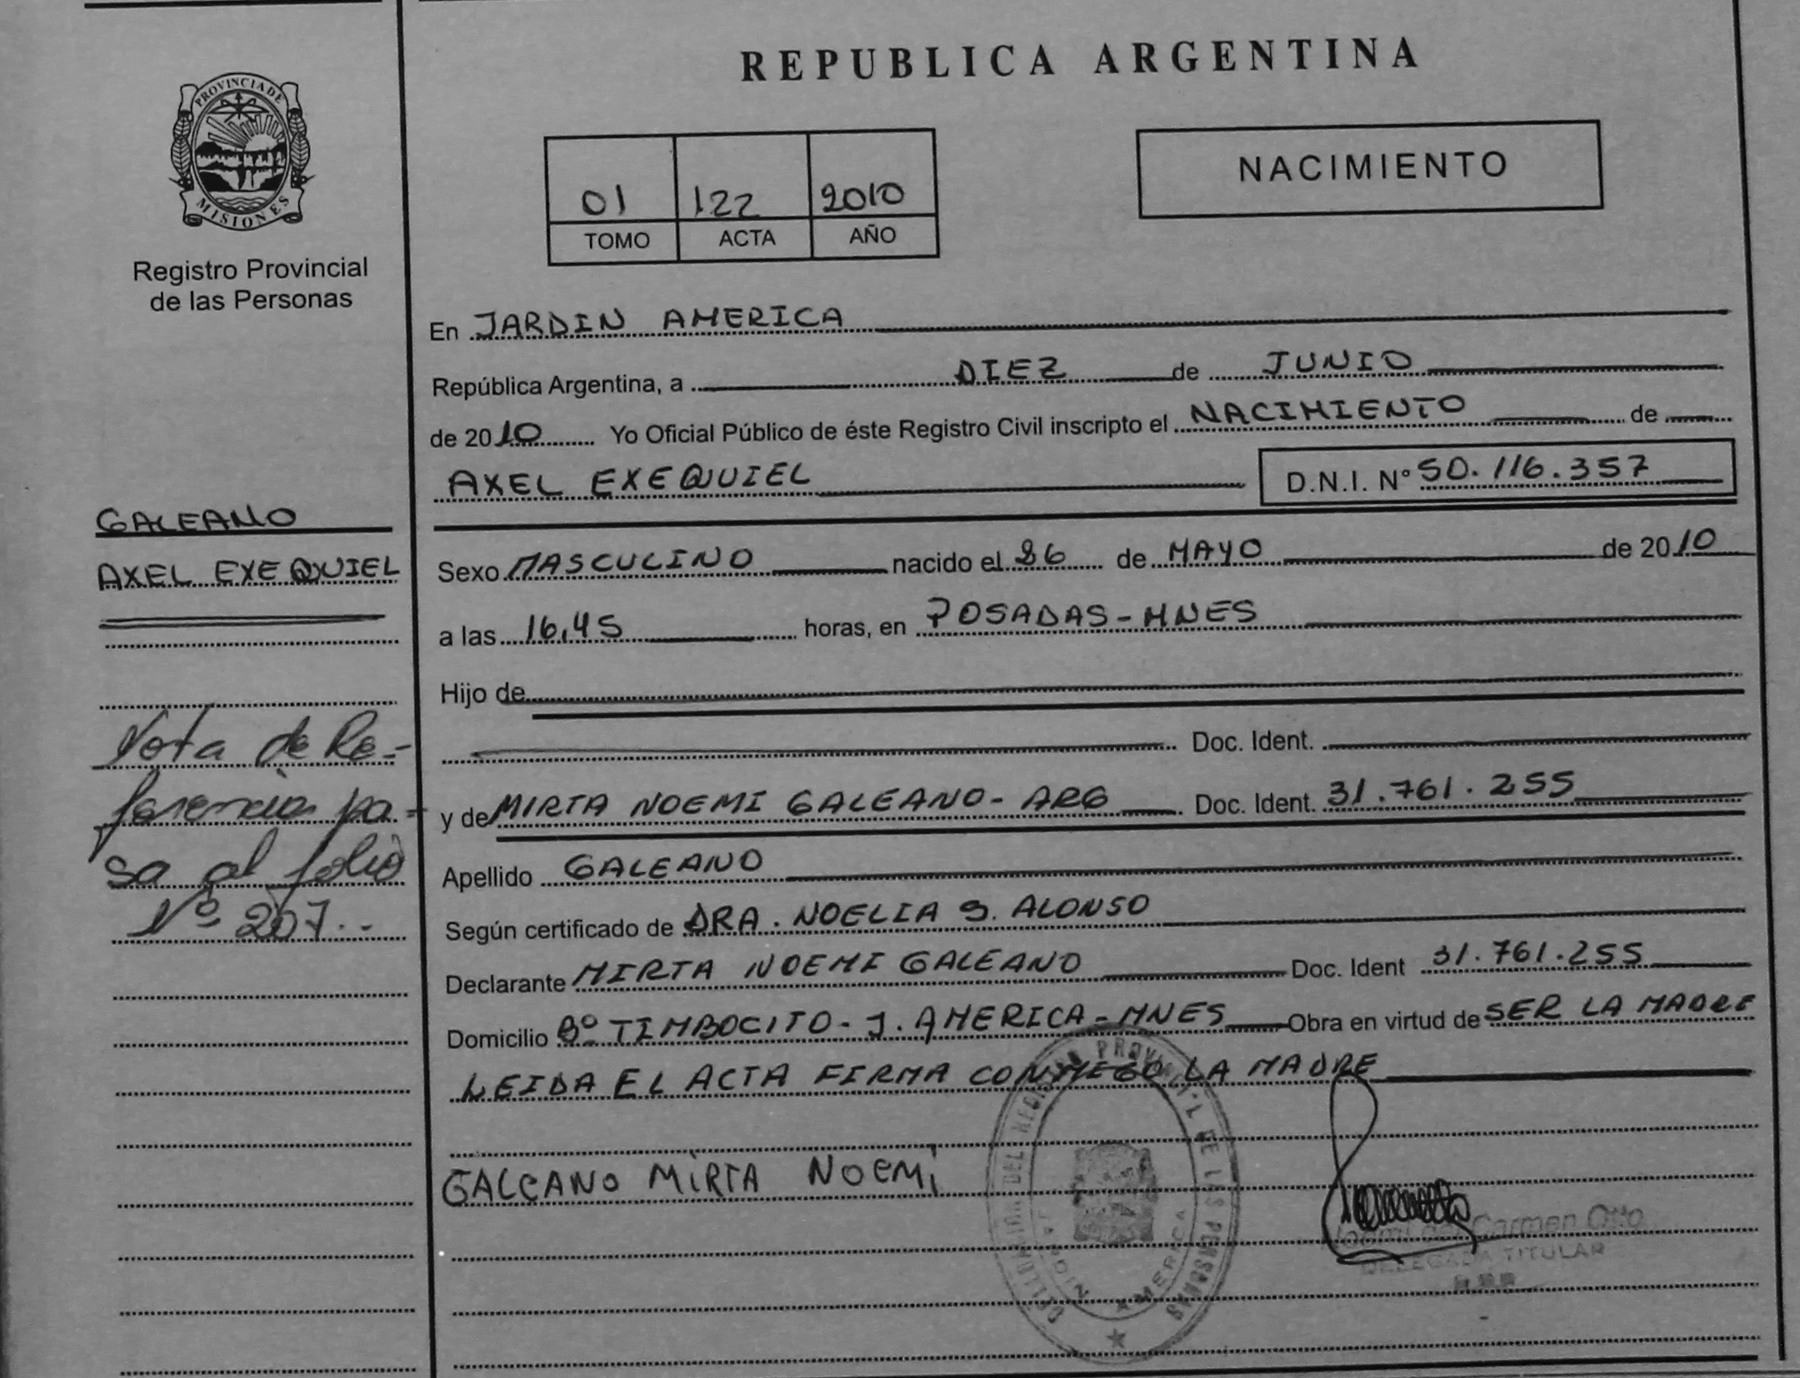 REPUBLICA ARGENTINA
PROVINCIA DE
MISIONES
Registro Provincial
de las Personas
01 122 2010
TOMO ACTA AÑO
NACIMIENTO
En JARDIN AMERICA
República Argentina, a DIEZ de JUNIO
de 2010 Yo Oficial Público de éste Registro Civil inscripto el NACIMIENTO de
AXEL EXEQUIEL D.N.I. Nº 50.116.357
GALEANO
AXEL EXEQUIEL
Sexo MASCULINO nacido el 26 de MAYO de 2010
a las 16,45 horas, en POSADAS-MNES
Hijo de
Doc. Ident.
y de MIRTA NOEMI GALEANO-ARG Doc. Ident. 31.761.255
Apellido GALEANO
Según certificado de DRA. NOELIA S. ALONSO
Declarante MIRTA NOEMI GALEANO Doc. Ident 31.761.255
Domicilio Bº TIMBOCITO-J. AMERICA-MNES Obra en virtud de SER LA MADRE
LEIDA EL ACTA FIRMA CONMIGO LA MADRE
GALEANO MIRTA NOEMI
Nota de Re-
ferencia pa-
sa al folio
Nº 207.-
DELEGACION DEL REGISTRO PROVINCIAL DE LAS PERSONAS
JARDIN AMERICA
del Carmen Otto
DELEGADA TITULAR